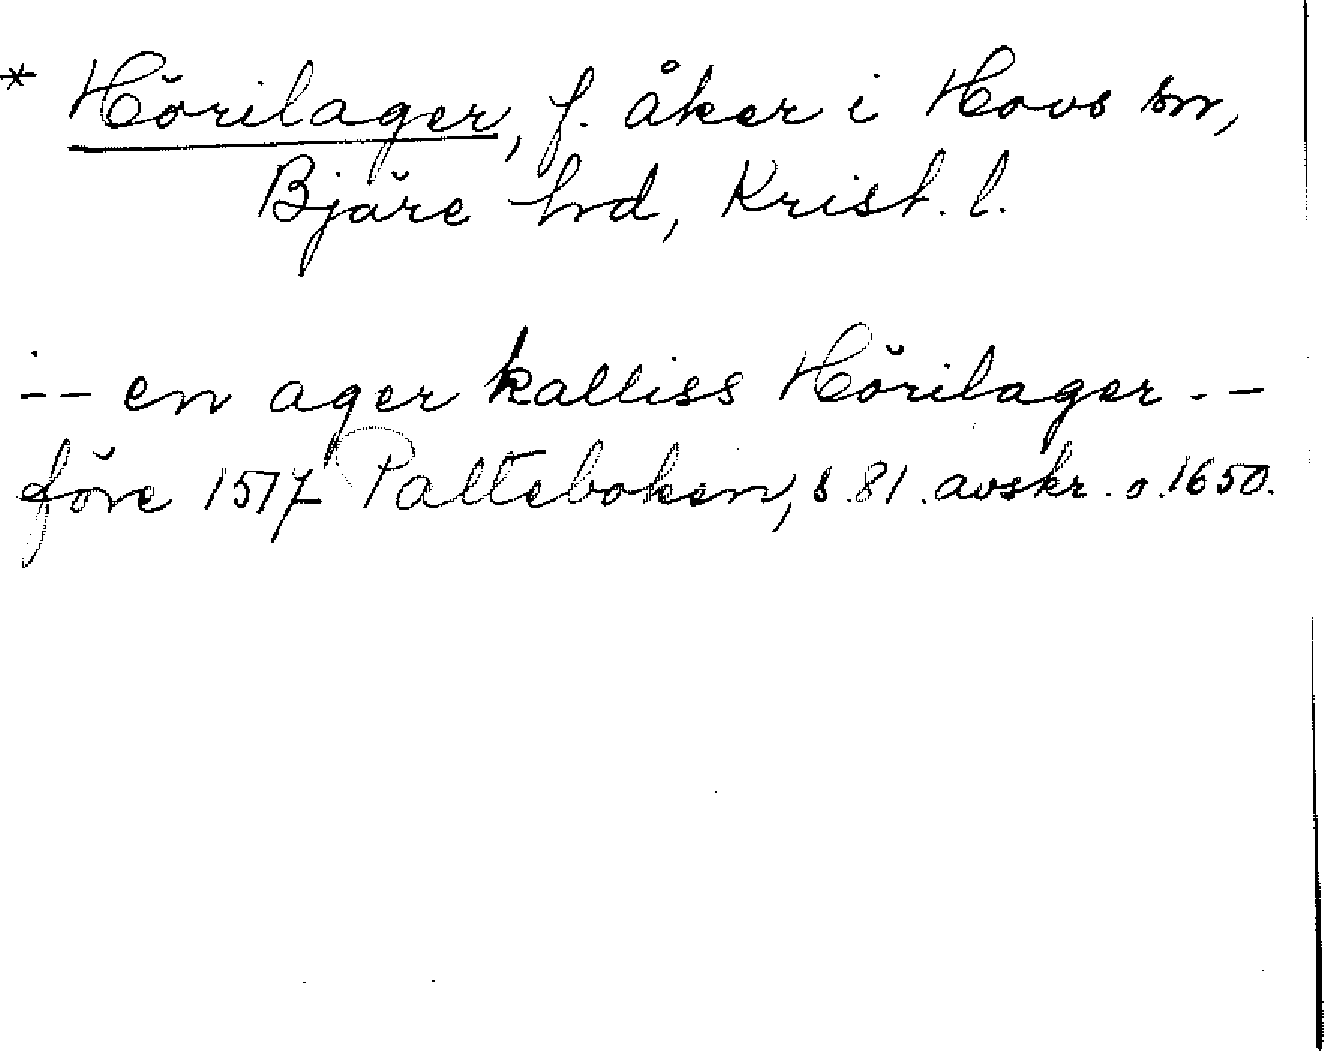 * Hörilager, f. åker i Hovs sn,
Bjäre hrd, Krist. l.
-- en ager kalliss Hörilager --
före 1517 Palteboken, s. 81. avskr. o. 1650.